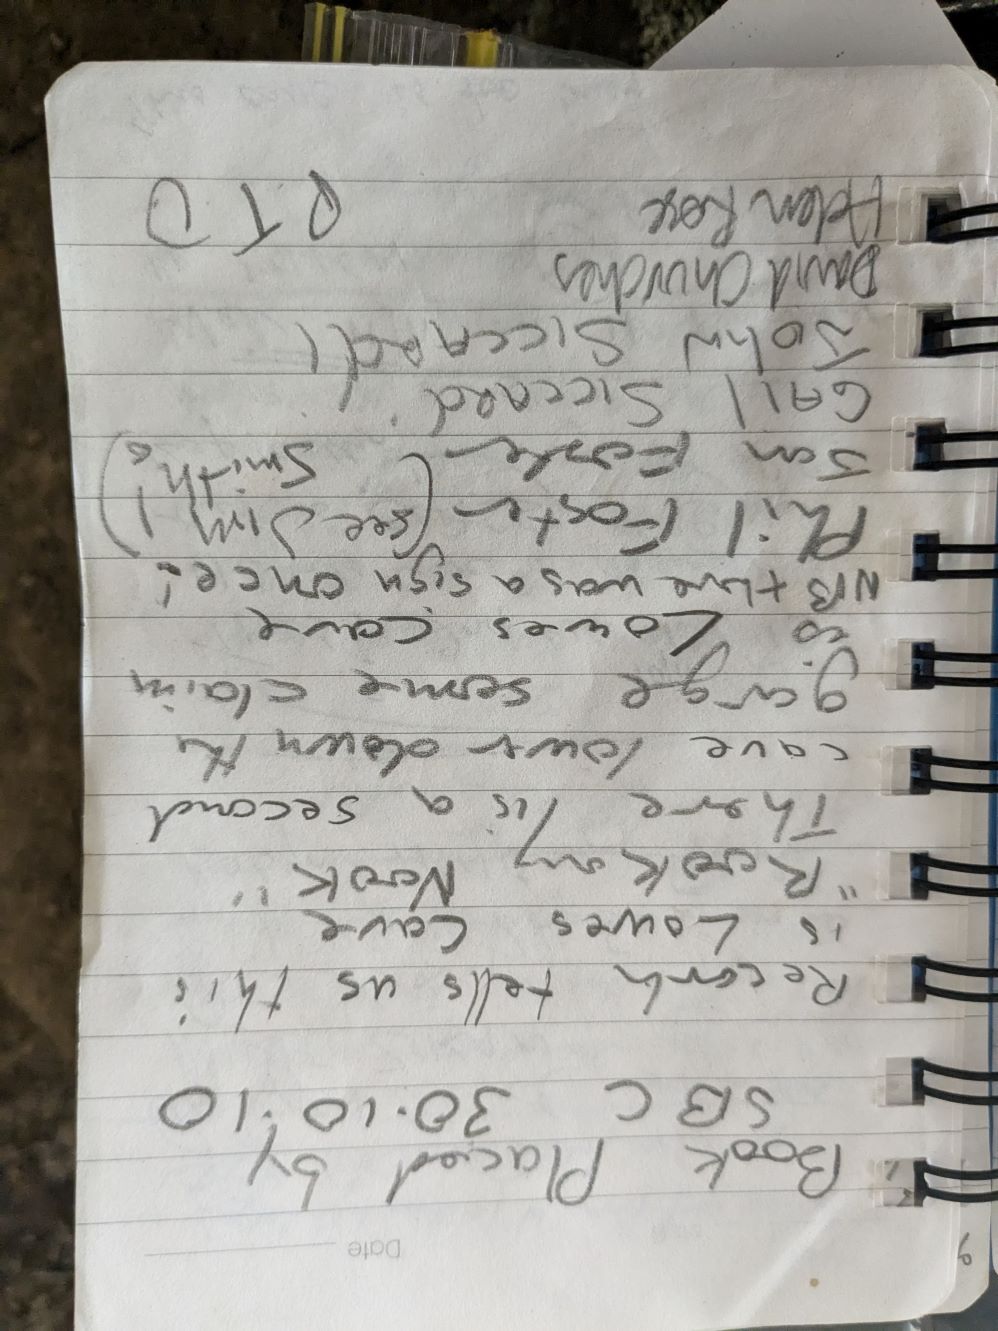 Date
Book Placed by
SBC 30.10.10
Records tells us this
is Lowes Cave
"Rrook any Nook"
There is a second
cave lower down the
gorge some claim
to Lowes cave
NB there was a sign once!
Phil Foster (see Jim!
Jan Foster Smith)
GAIL SICCARD
JOHN SICCARD
David Churches
Helen Rose PTO